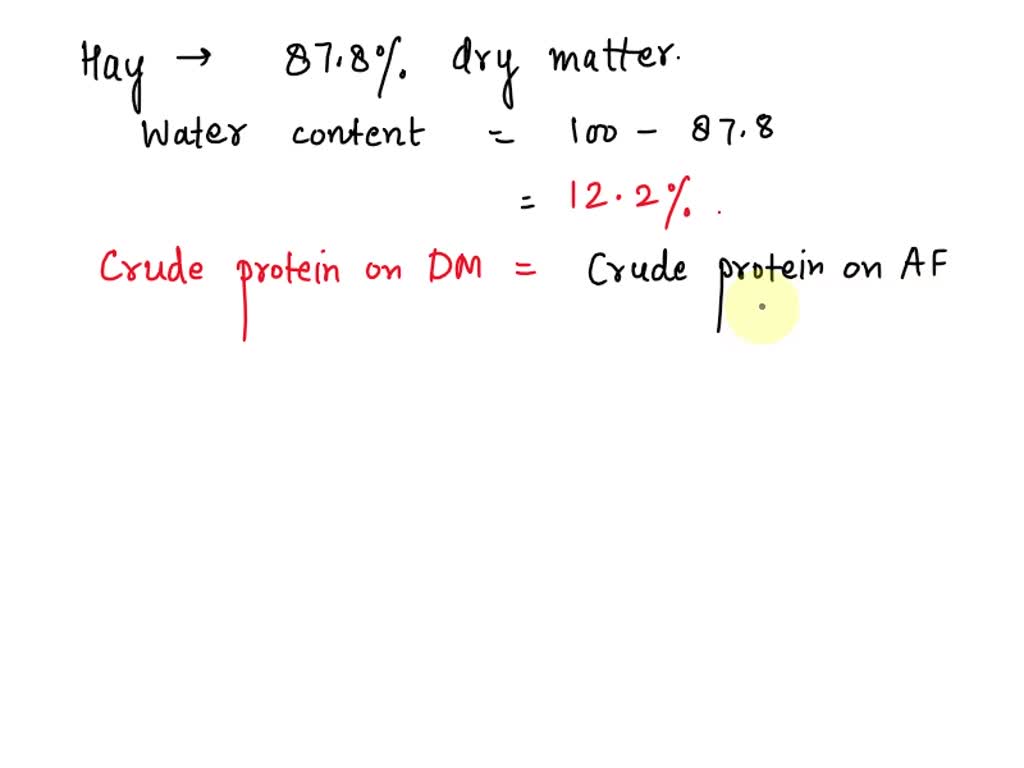 Hay → 87.8% dry matter.
Water content = 100 - 87.8
= 12.2%.
Crude protein on DM = Crude protein on AF